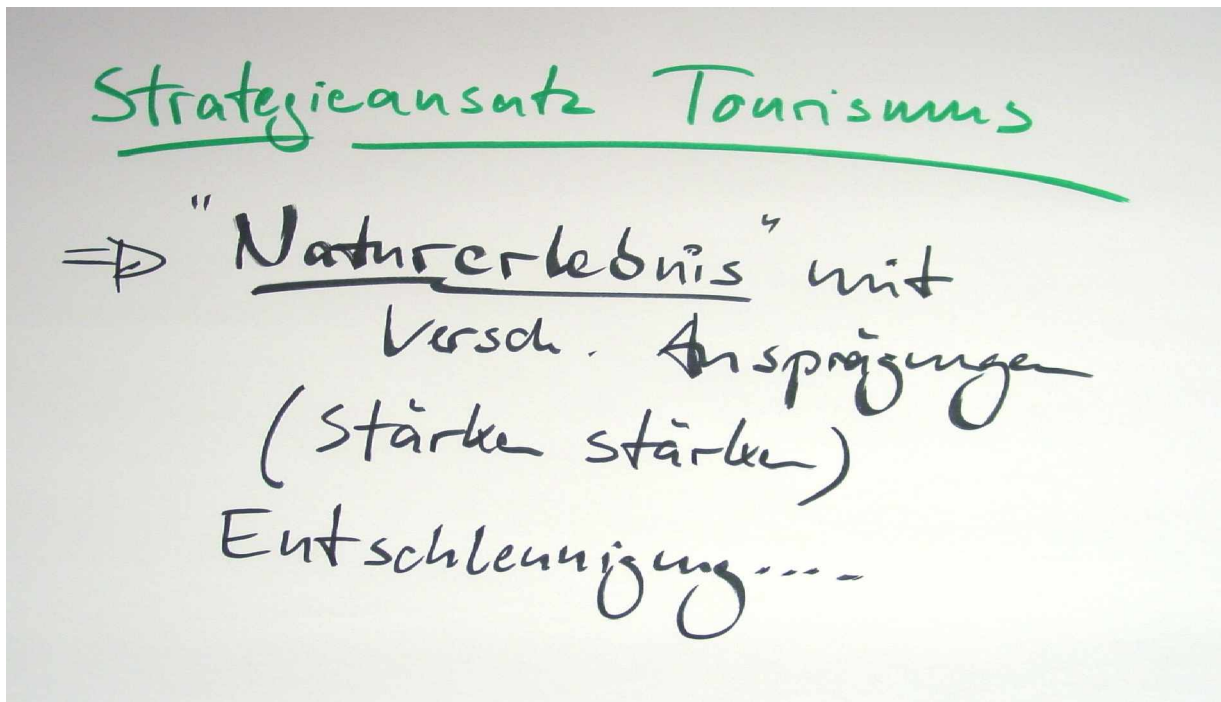 Strategieansatz Tourismus
⇒ "Naturerlebnis" mit
versch. Ausprägungen
(Stärken stärken)
Entschleunigung....